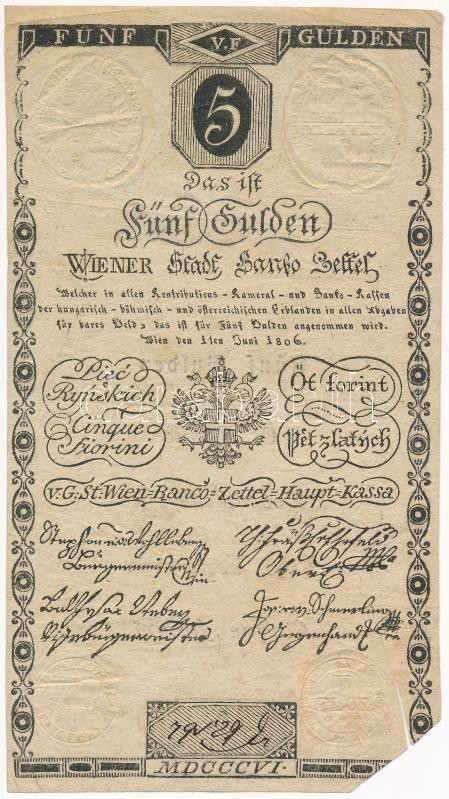 FÜNF V.F GULDEN
5
Das ist
Fünf Gulden
WIENER Stadt Banko Zettel
Welcher in allen Kontributions - Kameral - und Banko - Kassen
der hungarisch - böhmisch - und österreichischen Erblanden in allen Abgaben
für bares Geld, das ist für Fünf Gulden angenommen wird.
Wien den 1ten Juni 1806.
Pięć
Ryńskich
Cinque
Fiorini
Öt forint
Pět zlatých
V. G. St. Wien=Banco=Zettel=Haupt=Kassa
Stephan
Burgermeister
Ober
Vizebürgermeister
Schmerling
Gegenhandl
MDCCCVI.